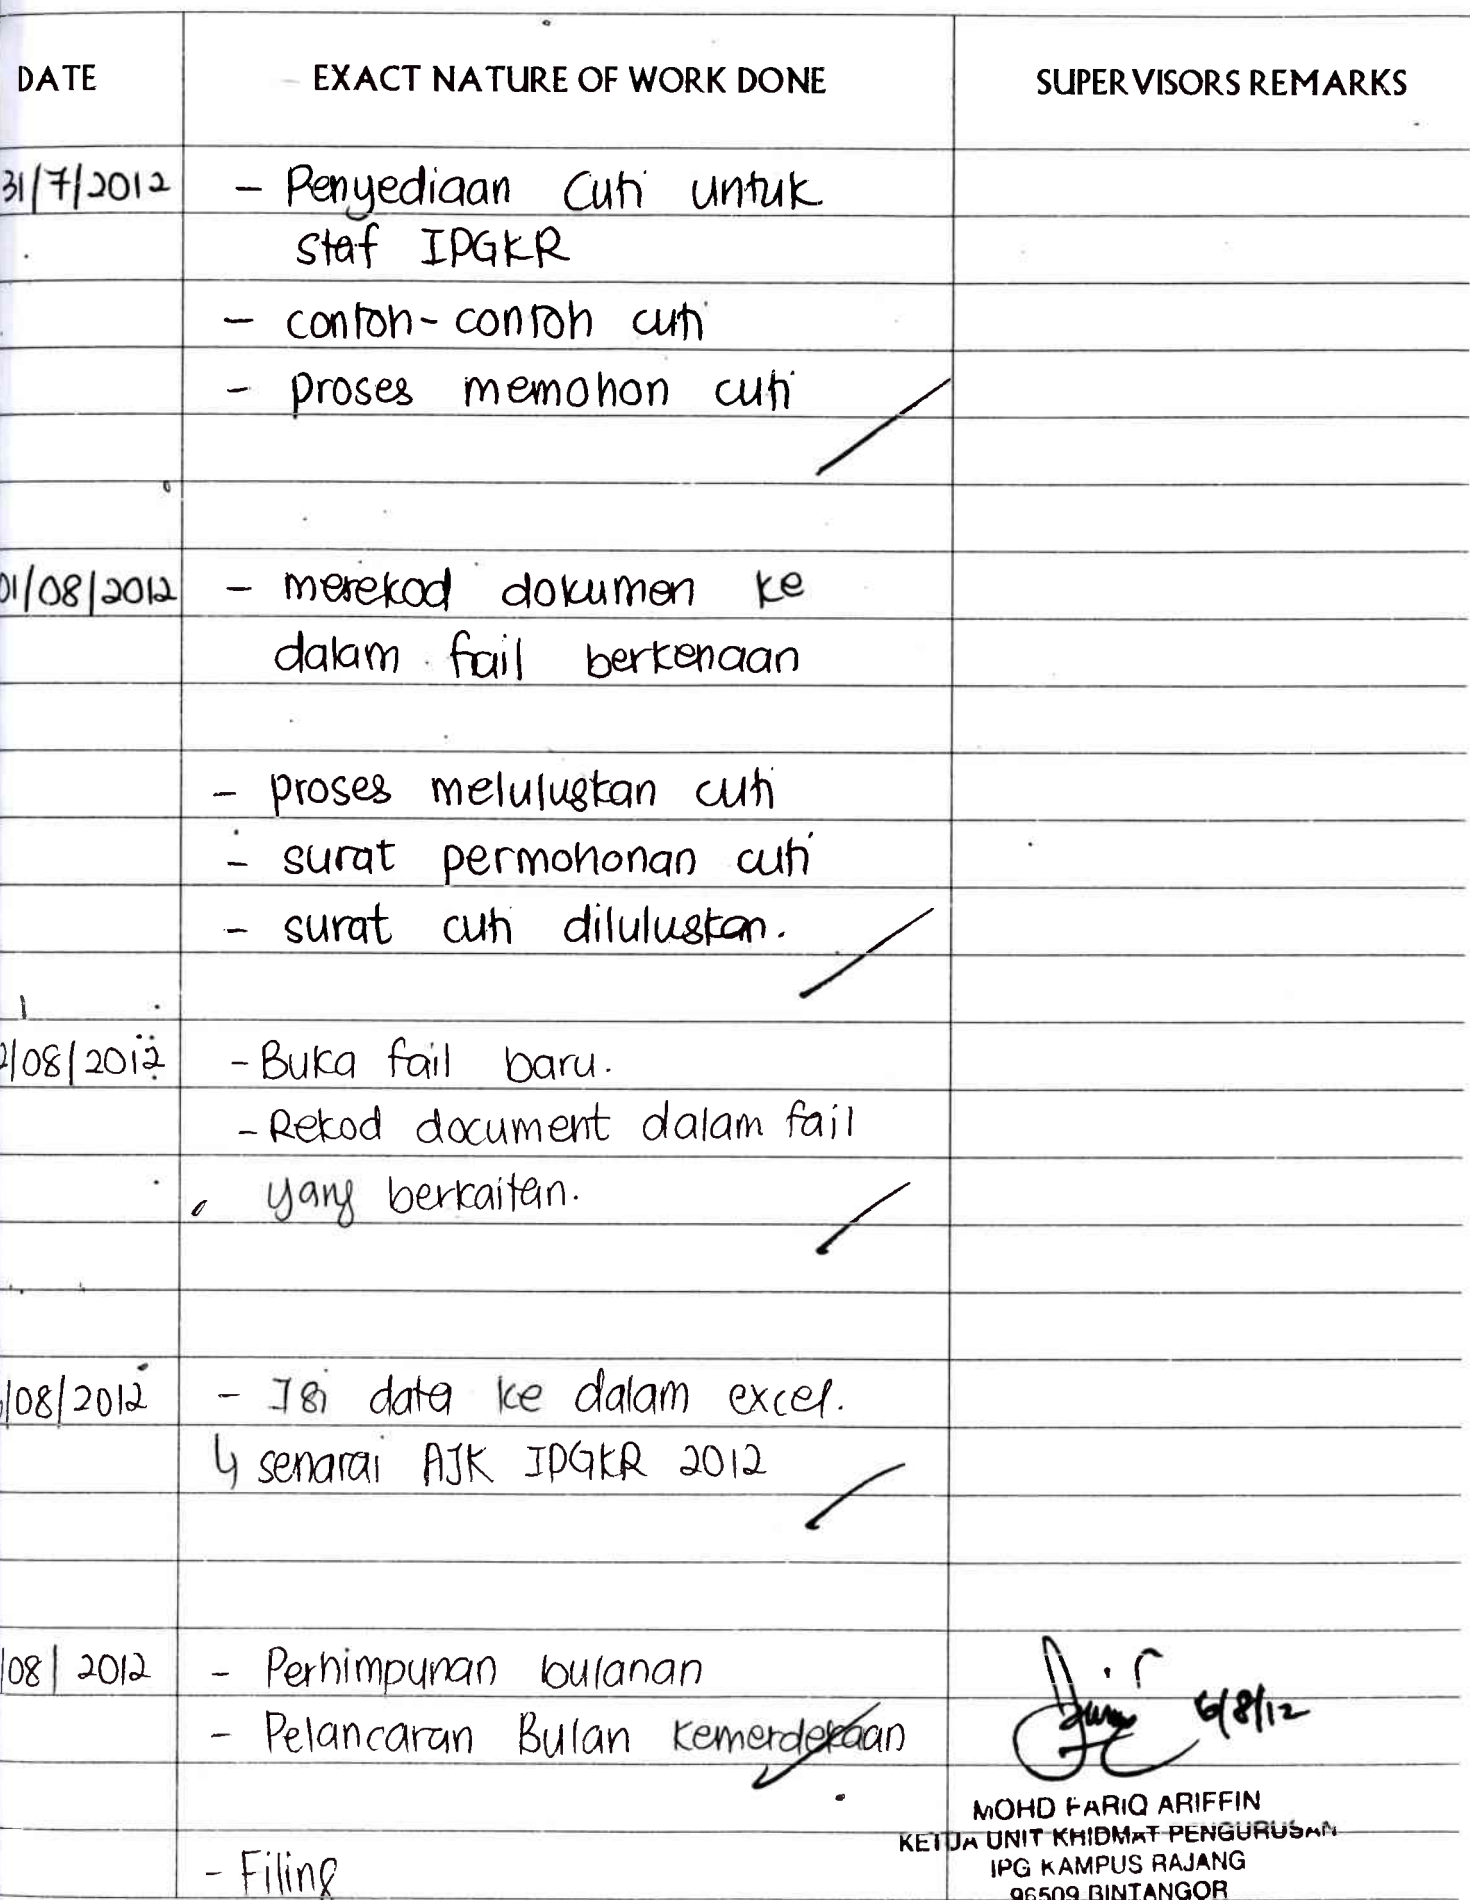 DATE EXACT NATURE OF WORK DONE SUPERVISORS REMARKS
31/7/2012 - Penyediaan Cuti untuk
staf IPGKR
- contoh-contoh cuti
- proses memohon cuti
01/08/2012 - merekod dokumen ke
dalam fail berkenaan
- proses meluluskan cuti
- surat permohonan cuti
- surat cuti diluluskan.
2/08/2012 - Buka fail baru.
- Rekod document dalam fail
yang berkaitan.
/08/2012 - Isi data ke dalam excel.
↳ senarai AJK IPGKR 2012
/08/2012 - Perhimpunan bulanan
- Pelancaran Bulan Kemerdekaan
6/8/12
MOHD FARIQ ARIFFIN
KETUA UNIT KHIDMAT PENGURUSAN
IPG KAMPUS RAJANG
96509 BINTANGOR
- Filing